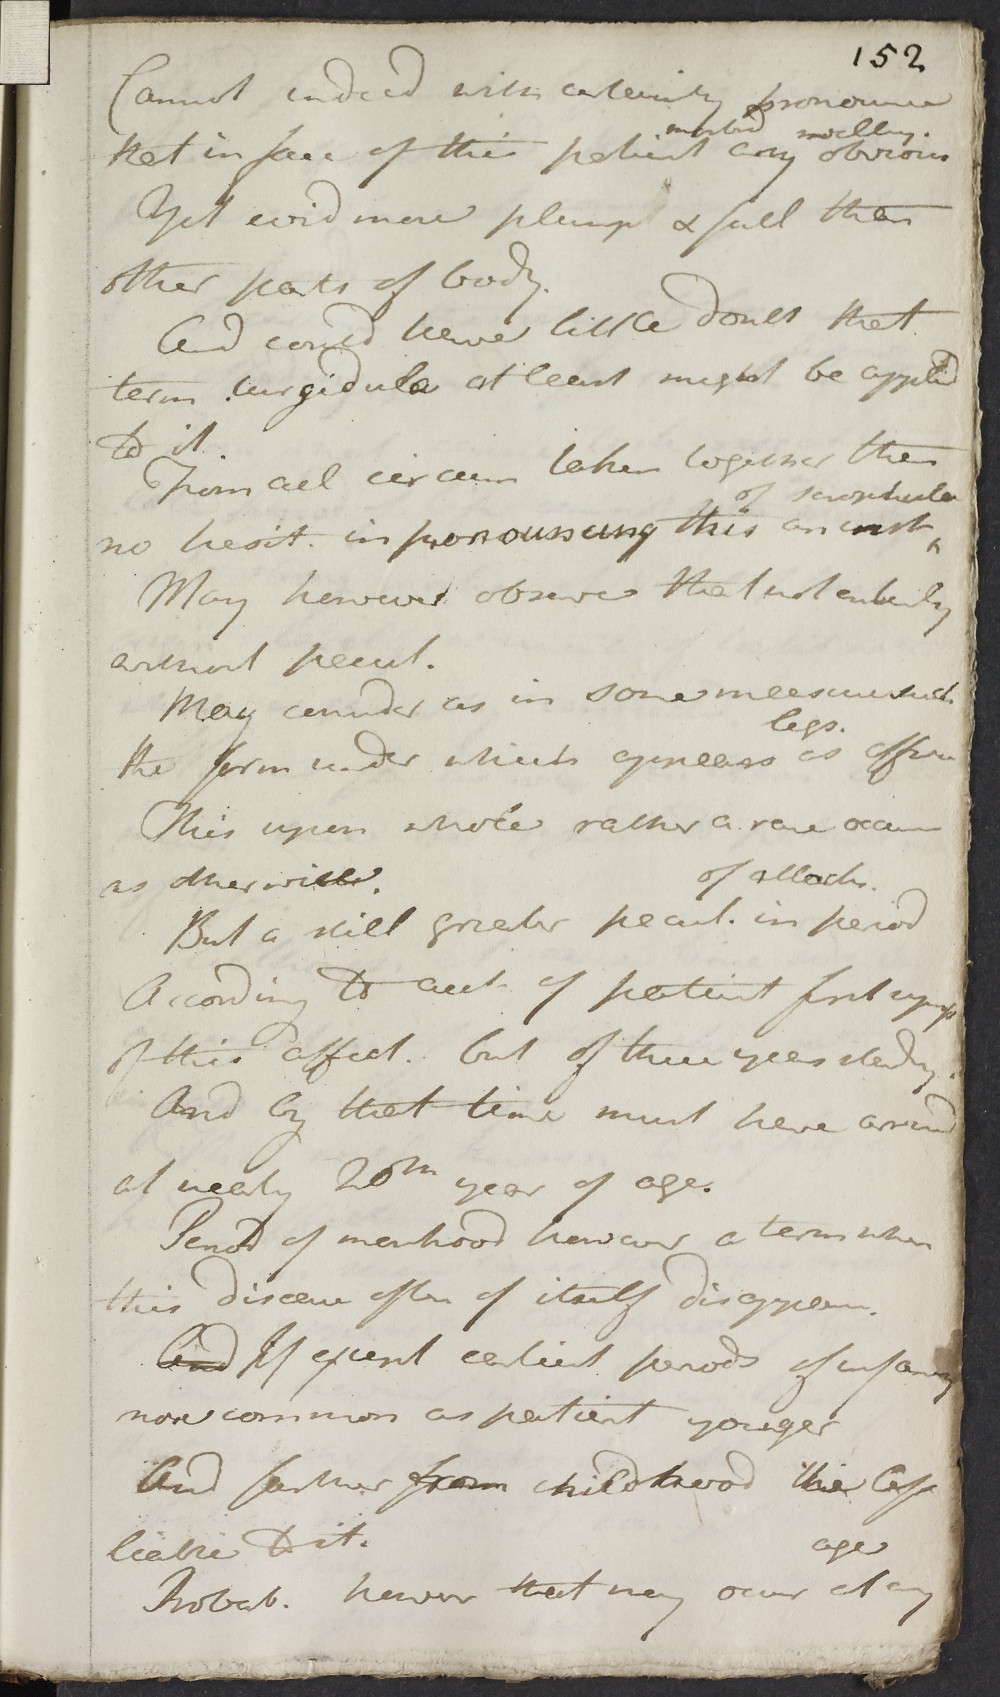 152
Cannot indeed with certainty pronounce
morbid swelling.
that in face of this patient any obvious
Yet evid more plump & full than
other parts of body.
And could have little doubt that
term turgidula at least might be applied
to it
From all circum taken together then
of scrophula
no hesit. in pronouncing this an inst
May however observe that not entirely
without pecul.
May consider as in some measure such
legs.
the form under which appears as affec
This upon whole rather a rare occur
as otherwise.
of attack.
But a still greater pecul. in period
According to acct of patient first symp
of this affect. but of three years standg.
And by that time must have arrived
at nearly 20th year of age.
Period of manhood however a term when
this disease often of itself disappears.
And If except earliest periods of infancy
more common as patient younger
And farther from childhood the less
liable to it.
age
Probab. however that may occur at any